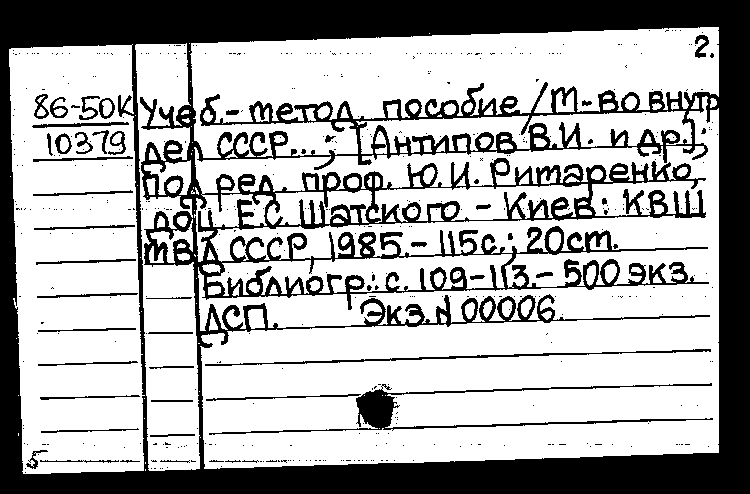 2.
86-50К Учеб.- метод. пособие / М-во внутр
10379 дел СССР...; [Антипов В.И. и др.];
под ред. проф. Ю.И. Римаренко,
доц. Е.С. Шатского. - Киев: КВШ
МВД СССР, 1985.- 115с.; 20см.
Библиогр.: с. 109-113.- 500 экз.
ДСП. Экз.N 00006.
5